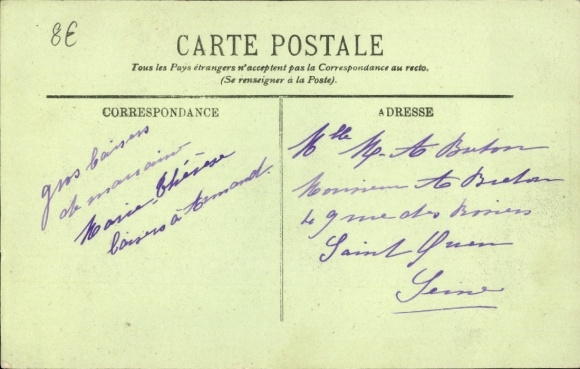 8€
CARTE POSTALE
Tous les Pays étrangers n'acceptent pas la Correspondance au recto.
(Se renseigner à la Poste).
CORRESPONDANCE
gros baisers
de marraine
Marie-Thérèse
baisers à Armand.
ADRESSE
Mlle M. A Breton
Monsieur A Breton
49 rue des Rosiers
Saint Ouen
Seine